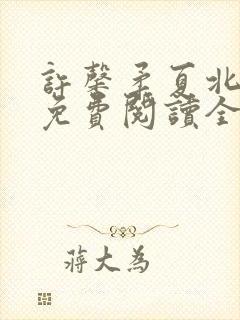 許馨矛夏北
免費閱讀全
蔣大為